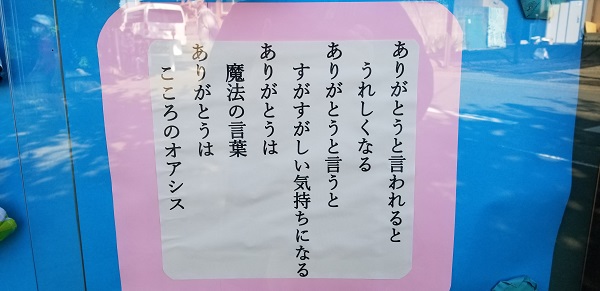 ありがとうと言われると
うれしくなる
ありがとうと言うと
すがすがしい気持ちになる
ありがとうは
魔法の言葉
ありがとうは
こころのオアシス